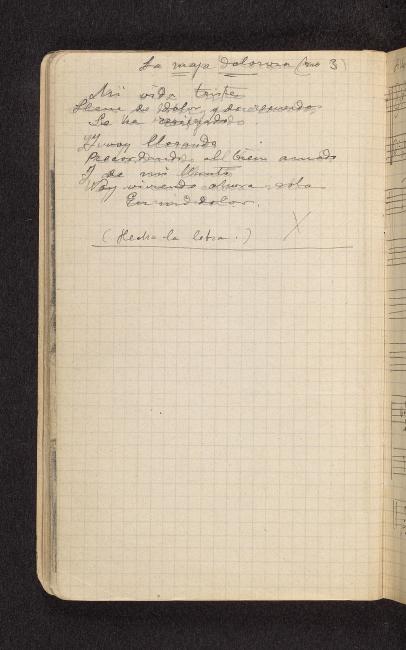 La maja dolorosa (nº 3)
Mi vida triste
Llena de dolor y de recuerdos
Se ha resignado.
Y voy llorando
Recordando al bien amado
Y de mi
Voy viviendo ahora sola
En mi dolor.
(Hecha la letra.) X